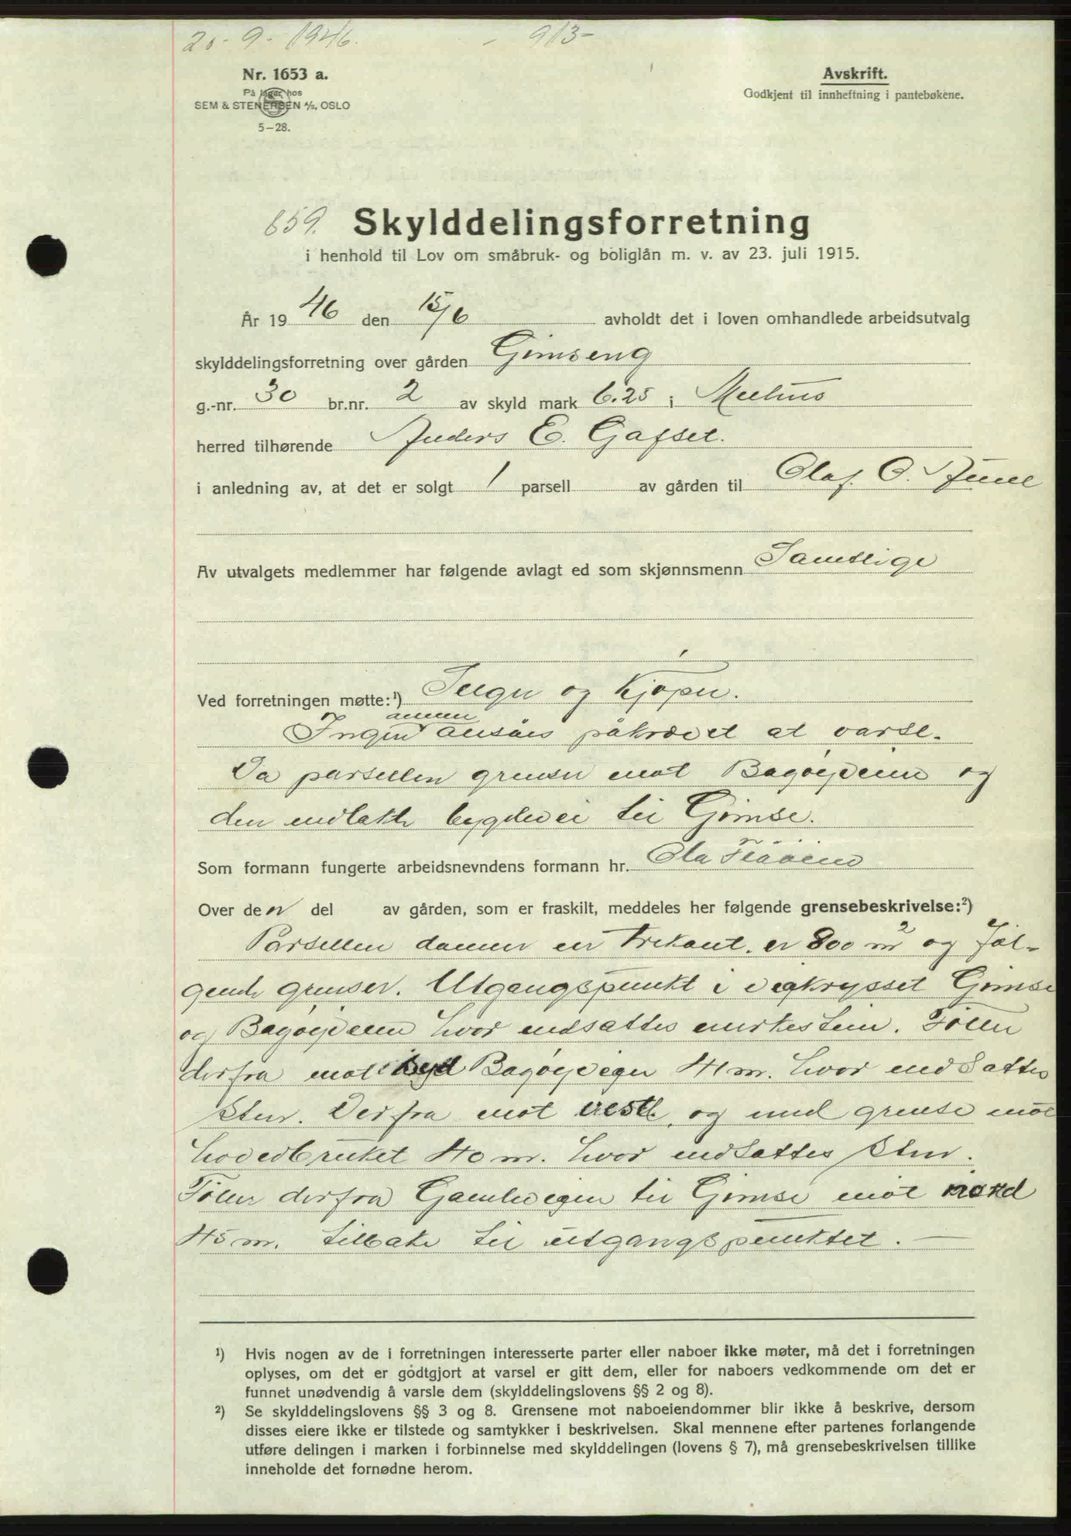 20-9-1946. - 913-
Nr. 1653 a.
På lager hos
SEM & STENERSEN A/S, OSLO
5-28.
Avskrift.
Godkjent til innheftning i pantebøkene.
859. Skylddelingsforretning
i henhold til Lov om småbruk- og boliglån m. v. av 23. juli 1915.
År 1946 den 15/6 avholdt det i loven omhandlede arbeidsutvalg
skylddelingsforretning over gården Gimseng
g.-nr. 30 br.nr. 2 av skyld mark 6.25 i Melhus
herred tilhørende Anders E. Gafset.
i anledning av, at det er solgt 1 parsell av gården til Olaf O.
Av utvalgets medlemmer har følgende avlagt ed som skjønnsmenn Samtlige
Ved forretningen møtte:¹) Selger og Kjøper.
annen
Ingen ansåes påkrevet at varsle.
Da parsellen grenser mot Bagøyveien og
den nedlatte bygdevei til Gimse.
Som formann fungerte arbeidsnevndens formann hr. Ola
Over den del av gården, som er fraskilt, meddeles her følgende grensebeskrivelse:²)
Parsellen danner en trekant. er 800 m² og føl-
gende grenser. Utgangspunkt i veikrysset Gimse
og Bagøyveien hvor nedsattes merkestein. Følger
derfra mot syd Bagøyveien 41 m. hvor nedsattes
sten. Derfra mot vest, og med grense mot
hovedbruket 40 m. hvor nedsattes sten.
Følger derfra Gamleveien til Gimse mot nord
45 m. tilbake til utgangspunktet. -
¹) Hvis nogen av de i forretningen interesserte parter eller naboer ikke møter, må det i forretningen
oplyses, om det er godtgjort at varsel er gitt dem, eller for naboers vedkommende om det er
funnet unødvendig å varsle dem (skylddelingslovens §§ 2 og 8).
²) Se skylddelingslovens §§ 3 og 8. Grensene mot naboeiendommer blir ikke å beskrive, dersom
disses eiere ikke er tilstede og samtykker i beskrivelsen. Skal mennene efter partenes forlangende
utføre delingen i marken i forbinnelse med skylddelingen (lovens § 7), må grensebeskrivelsen tillike
inneholde det fornødne herom.